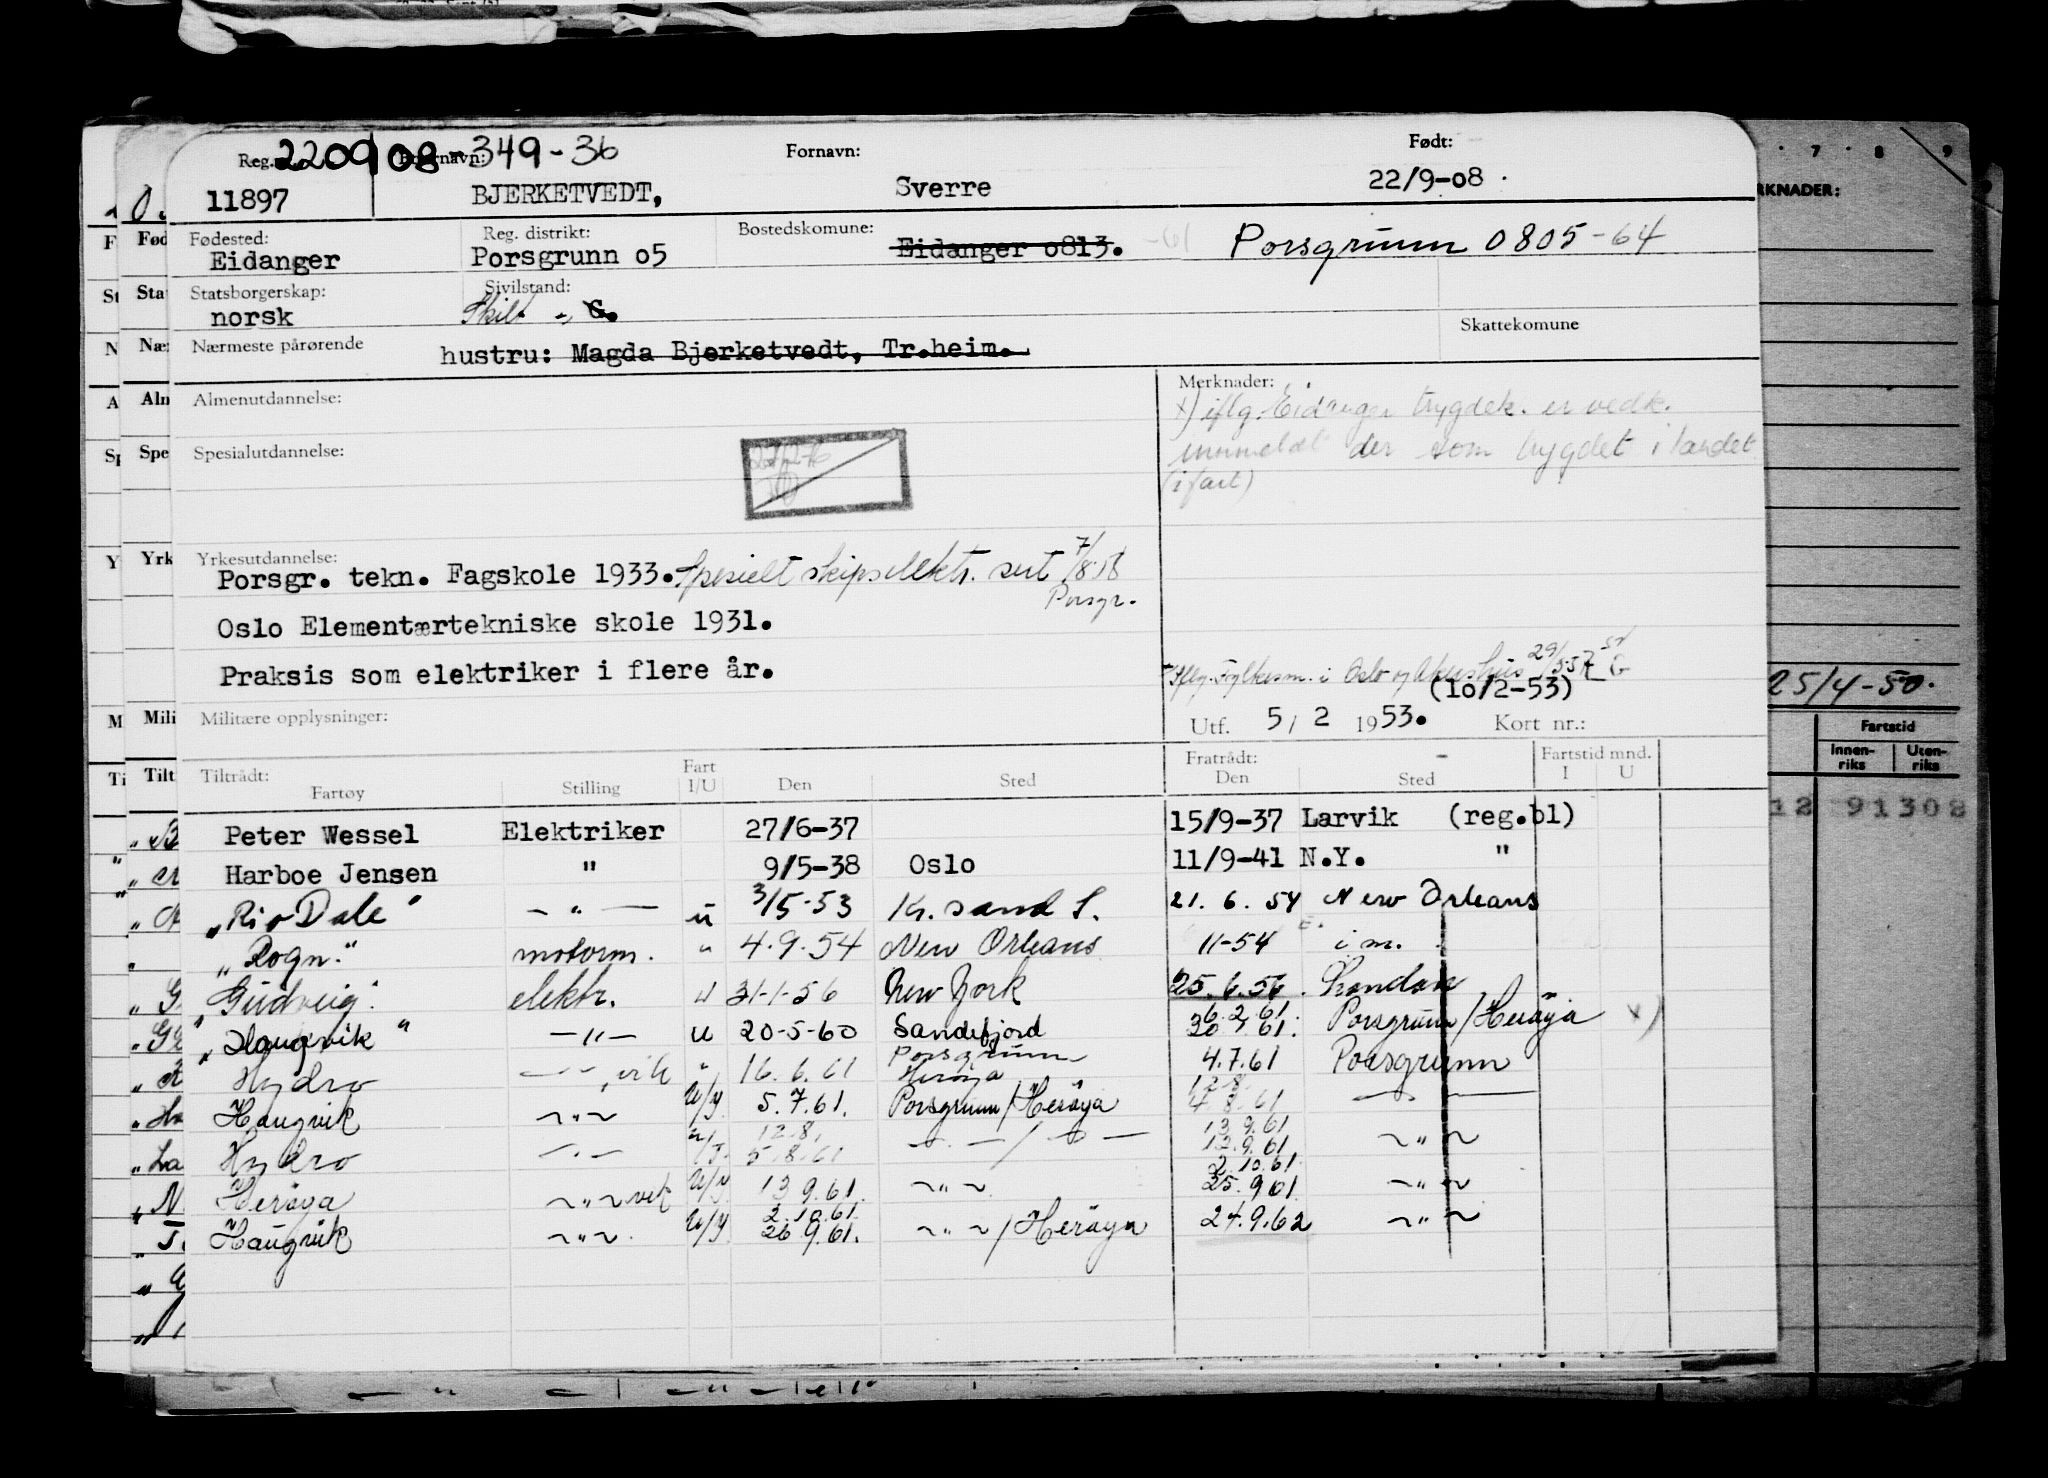 220908-349-36
Reg. Etternavn: Fornavn: Født:
11897 BJERKETVEDT, Sverre 22/9-08
Fødested: Reg. distrikt: Bostedskomune:
Eidanger Porsgrunn 05 Eidanger 0813. -61 Porsgrunn 0805-64
Statsborgerskap: Sivilstand:
norsk Skilt G.
Skattekomune
Nærmeste pårørende hustru: Magda Bjerketvedt, Tr.heim.
Merknader:
Almenutdannelse: x) iflg. Eidanger trygdek. er vedk.
Spesialutdannelse: innmeldt der som trygdet i landet
(i fart)
Yrkesutdannelse:
Porsgr. tekn. Fagskole 1933. Spesielt skipselektr. sert 7/8.58
Porsgr.
Oslo Elementærtekniske skole 1931.
Praksis som elektriker i flere år.
Iflg. Fylkesm. i Oslo og Akershus 29/3-57
(10/2-53)
25/4-50.
Militære opplysninger: Utf. 5/2 1953. Kort nr.:
Tiltrådt: Fratrådt: Fartstid mnd.
Fartøy Stilling Fart I/U Den Sted Den Sted I U
Peter Wessel Elektriker 27/6-37 15/9-37 Larvik (reg.bl)
Harboe Jensen " 9/5-38 Oslo 11/9-41 N.Y. "
"Rio Dale" - " - u 3/5-53 Kr.sand S. 21.6.54 New Orleans
"Rogn." motorm. " 4.9.54 New Orleans 11-54 i m.
"Gudveig". elektr. u 31-1-56 New York 25.6.56 London
"Haugvik" - " - u 20-5-60 Sandefjord 6.2.61 Porsgrunn/Herøya x)
Hydro - " - vik " 16.6.61 Porsgrunn Herøya 4.7.61 Porsgrunn
Haugvik ~ " ~ U/I 5.7.61. Porsgrunn/Herøya 12.8. 4.8.61
Hydro - " - 12.8. 5.8.61 13.9.61 12.9.61 ~ " ~
Herøya ~ " ~ vik 13.9.61. ~ " ~ 2.10.61 25.9.61. ~ " ~
Haugvik ~ " ~. 2.10.61. 26.9.61. ~ " ~ / Herøya 24.9.62 ~ " ~
7 8 9
RKNADER:
Fartstid
Innenriks Utenriks
12 91308